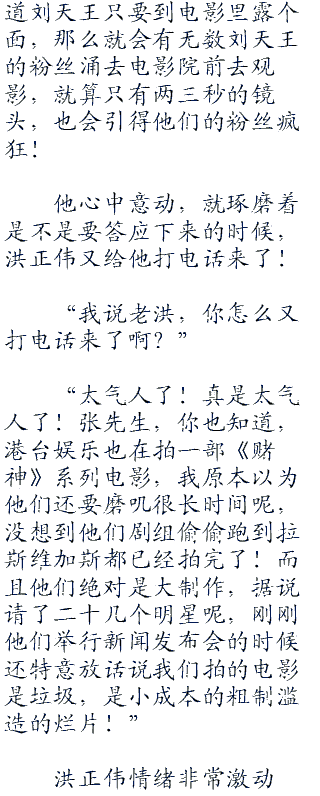 道刘天王只要到电影里露个
面，那么就会有无数刘天王
的粉丝涌去电影院前去观
影，就算只有两三秒的镜
头，也会引得他们的粉丝疯
狂！
他心中意动，就琢磨着
是不是要答应下来的时候，
洪正伟又给他打电话来了！
“我说老洪，你怎么又
打电话来了啊？”
“太气人了！真是太气
人了！张先生，你也知道，
港台娱乐也在拍一部《赌
神》系列电影，我原本以为
他们还要磨叽很长时间呢，
没想到他们剧组偷偷跑到拉
斯维加斯都已经拍完了！而
且他们绝对是大制作，据说
请了二十几个明星呢，刚刚
他们举行新闻发布会的时候
还特意放话说我们拍的电影
是垃圾，是小成本的粗制滥
造的烂片！”
洪正伟情绪非常激动